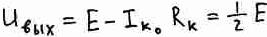 U_вых = E − I_к₀ R_к = ½ E